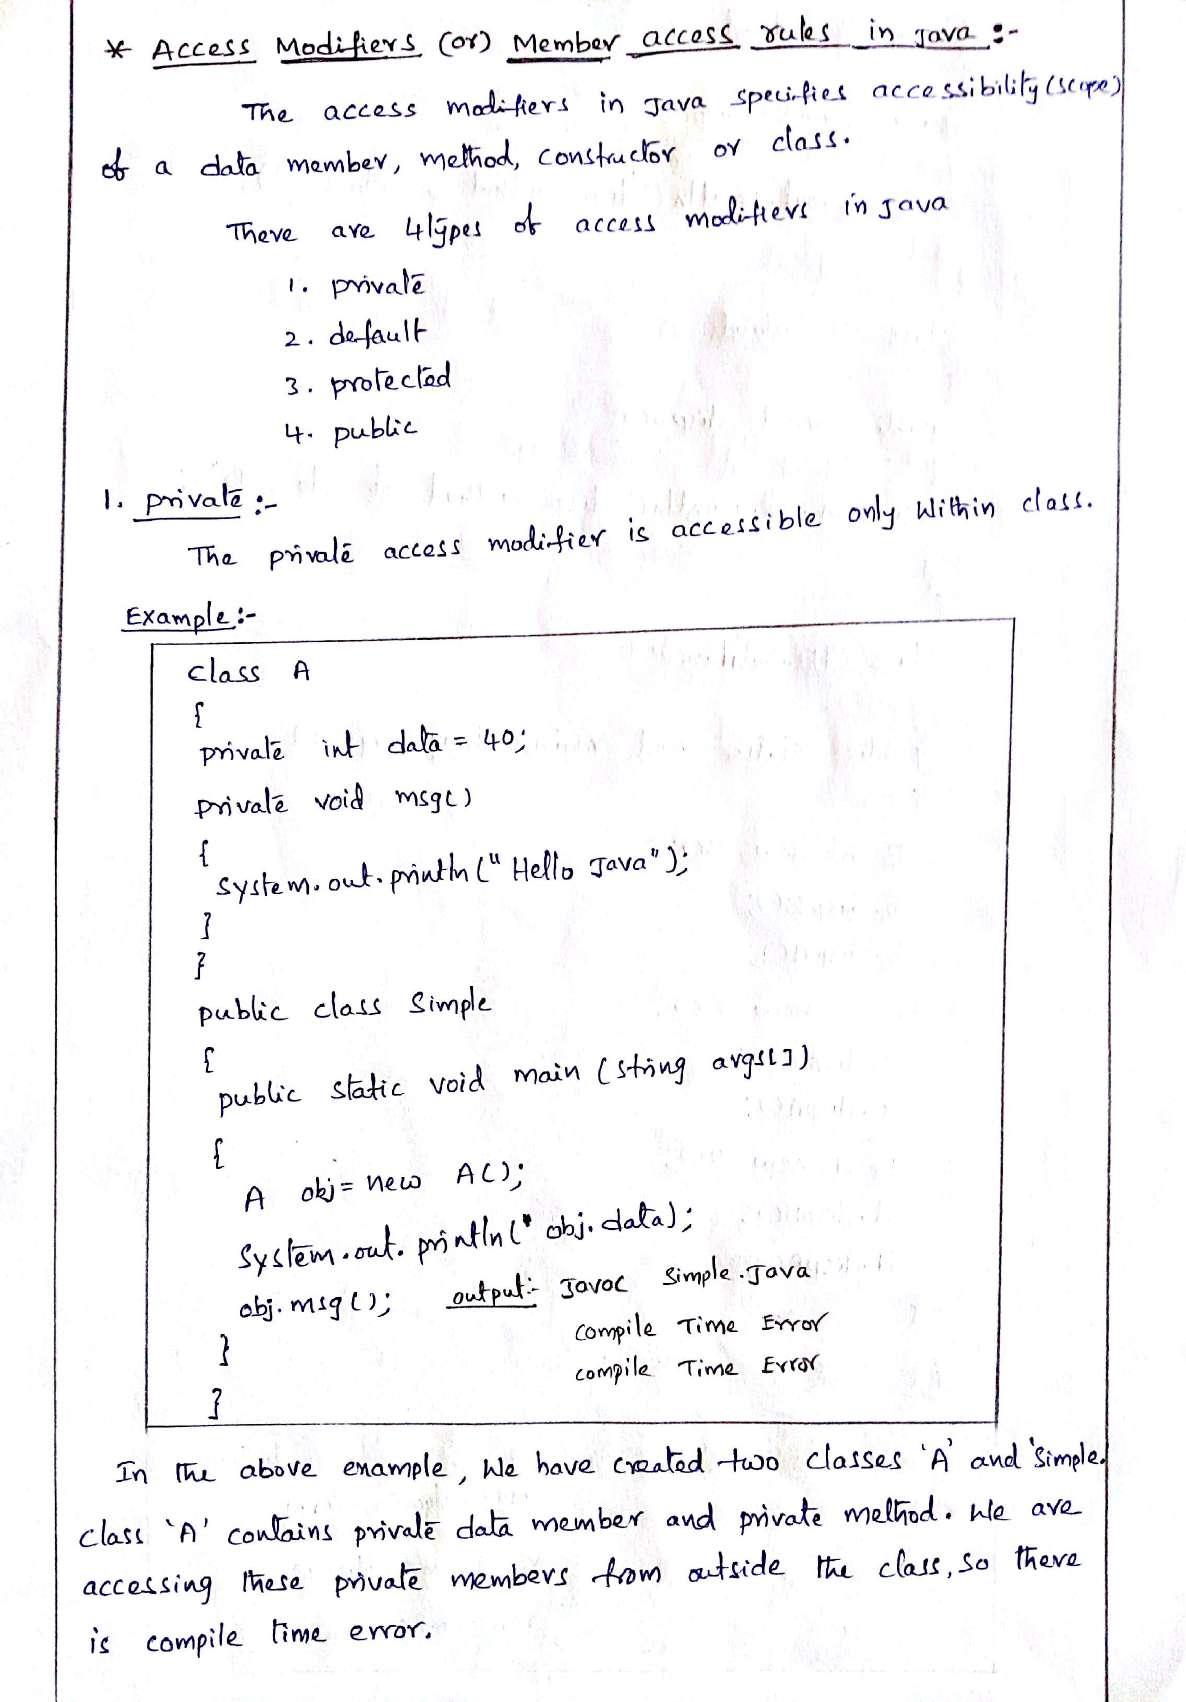 * Access Modifiers (or) Member access rules in Java :-
The access modifiers in Java specifies accessibility (scope)
of a data member, method, constructor or class.
There are 4 types of access modifiers in Java
1. private
2. default
3. protected
4. public
1. private :-
The private access modifier is accessible only within class.
Example :-
class A
{
private int data = 40;
private void msg()
{
System.out.println(" Hello Java");
}
}
public class Simple
{
public static void main (string args[])
{
A obj = new A();
System.out.println(" obj.data);
obj.msg(); output:- Javac simple.Java
compile Time Error
}
compile Time Error
}
In the above example, we have created two classes 'A' and 'simple.
class 'A' contains private data member and private method. We are
accessing these private members from outside the class, so there
is compile time error.